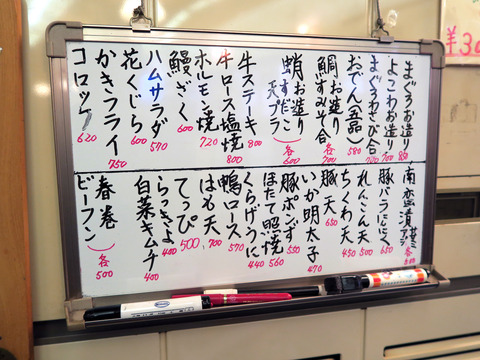 まぐろお造り 850
よこわお造り 700
まぐろわさび合 700
おでん(五品) 580
鯛お造り
鯛すみそ合
各700
蛸お造り
すだこ
天プラ
各600
牛ステーキ 800
牛ロース塩焼 800
ホルモン焼 720
鰻ざく 600
ハムサラダ 570
花くじら 600
かきフライ 750
コロッケ 620
南蛮漬
アジ
各600
豚バラにんにく 650
れんこん天 500
ちくわ天 450
豚天 650
いか明太子 470
豚ポンず 550
ほたて照焼 560
くらげうに 440
鴨ロース 570
はも天 700
てっぴ 500
らっきょ 400
白菜キムチ 400
春巻
ビーフン
各500
¥30